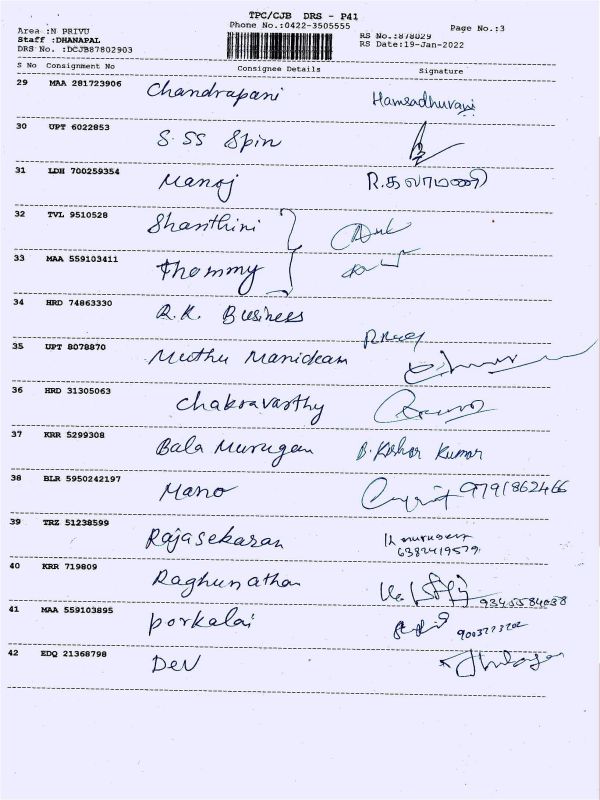 TPC/CJB DRS - P41
Area :N PRIVU Phone No.:0422-3505555 Page No.:3
Staff :DHANAPAL RS No.:878029
DRS No. :DCJB87802903 RS Date:19-Jan-2022
S No Consignment No Consignee Details Signature
29 MAA 281723906 Chandrapani Hamsadhuvani
30 UPT 6022853 S.SS Spin
31 LDH 700259354 Manoj R.கலாமணி
32 TVL 9510528 Shanthini
33 MAA 559103411 Thommy
34 HRD 74863330 R.K. Business
35 UPT 8078870 Muthu Manickam
36 HRD 31305063 Chakravarthy
37 KRR 5299308 Bala Murugan B. Kishor Kumar
38 BLR 5950242197 Mano 9791862466
39 TRZ 51238599 Rajasekaran K murugesan
6382419579
40 KRR 719809 Raghunathan
41 MAA 559103895 Porkalai
42 EDQ 21368798 Dev